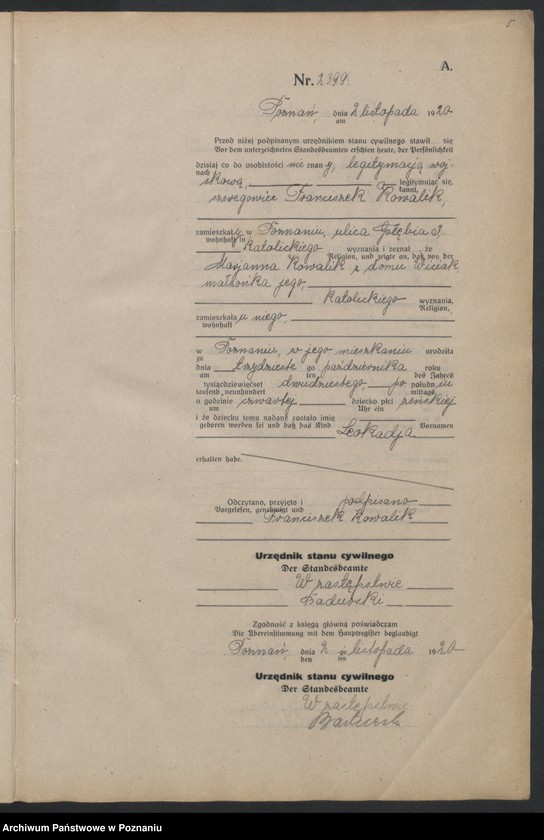 5
A.
Nr. 2399.
Poznań, dnia 2 listopada 1920
am
Przed niżej podpisanym urzędnikiem stanu cywilnego stawił się
Vor dem unterzeichneten Standesbeamten erschien heute, der Persönlichkeit
dzisiaj co do osobistości nie znany, legitymacją woj-
nach
skową, legitymując się,
kannt,
szeregowiec Franciszek Kowalik,
zamieszkały w Poznaniu, ulica Gołębia 3
wohnhaft in
katolickiego wyznania i zeznał, że
Religion, und zeigte an, daß von der
Marjanna Kowalik z domu Wiciak,
małżonka jego,
katolickiego wyznania,
Religion,
zamieszkała u niego,
wohnhaft
w Poznaniu, w jego mieszkaniu urodziła
zu
dnia trzydzieste go października roku
am ten des Jahres
tysiącdziewięćset dwudziestego, po południu
tausend neunhundert mittags
o godzinie czwartej dziecko płci żeńskiej
um Uhr ein
i że dziecku temu nadano zostało imię
geboren worden sei und daß das Kind Leokadja Vornamen
erhalten habe.
Odczytano, przyjęto i podpisano
Vorgelesen, genehmigt und
Franciszek Kowalik
Urzędnik stanu cywilnego
Der Standesbeamte
W zastępstwie
Zgodność z księgą główną poświadczam
Die Übereinstimmung mit dem Hauptregister beglaubigt
Poznań, dnia 2 go listopada 1920
den ten
Urzędnik stanu cywilnego
Der Standesbeamte
W zastępstwie
Archiwum Państwowe w Poznaniu